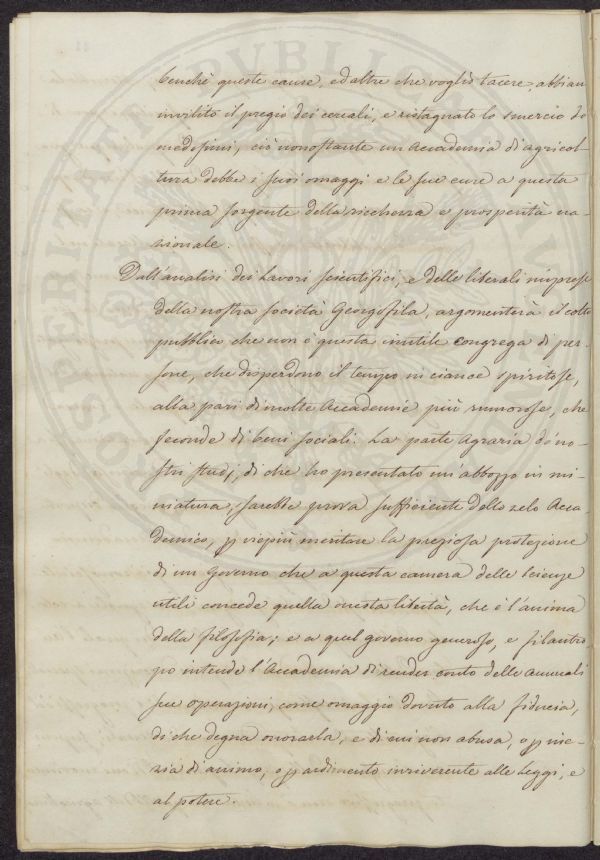 benchè queste cause, ed altre che voglio tacere, abbian
invilito il pregio dei cereali, e ristagnato lo smercio de
medesimi, ciò nonostante un Accademia di agricol-
tura debbe i suoi omaggi e le sue cure a questa
prima sorgente della ricchezza e prosperità na-
zionale.
Dall'analisi dei Lavori scientifici, e delle liberali imprese
della nostra società Georgofila, argomenterà il colto
pubblico che non è questa inutile congrega di per-
sone, che disperdono il tempo in ciance spiritose,
alla pari di molte Accademie più rumorose, che
feconde di beni sociali. La parte Agraria de' no-
stri studj, di che ho presentato un'abbozzo in mi-
niatura, sarebbe prova sufficiente dello zelo Acca-
demico, p viepiù meritare la preziosa protezione
di un Governo che a questa camera delle scienze
utili concede quella onesta libertà, che è l'anima
della filosofia; e a quel governo generoso, e filantro
po intende l'Accademia di render conto delle annuali
sue operazioni, come omaggio dovuto alla fiducia,
di che degna onorarla, e di cui non abusa, o p iner-
zia di animo, o p ardimento inriverente alle Leggi, e
al potere.
PROSPERITATI PUBLICAE